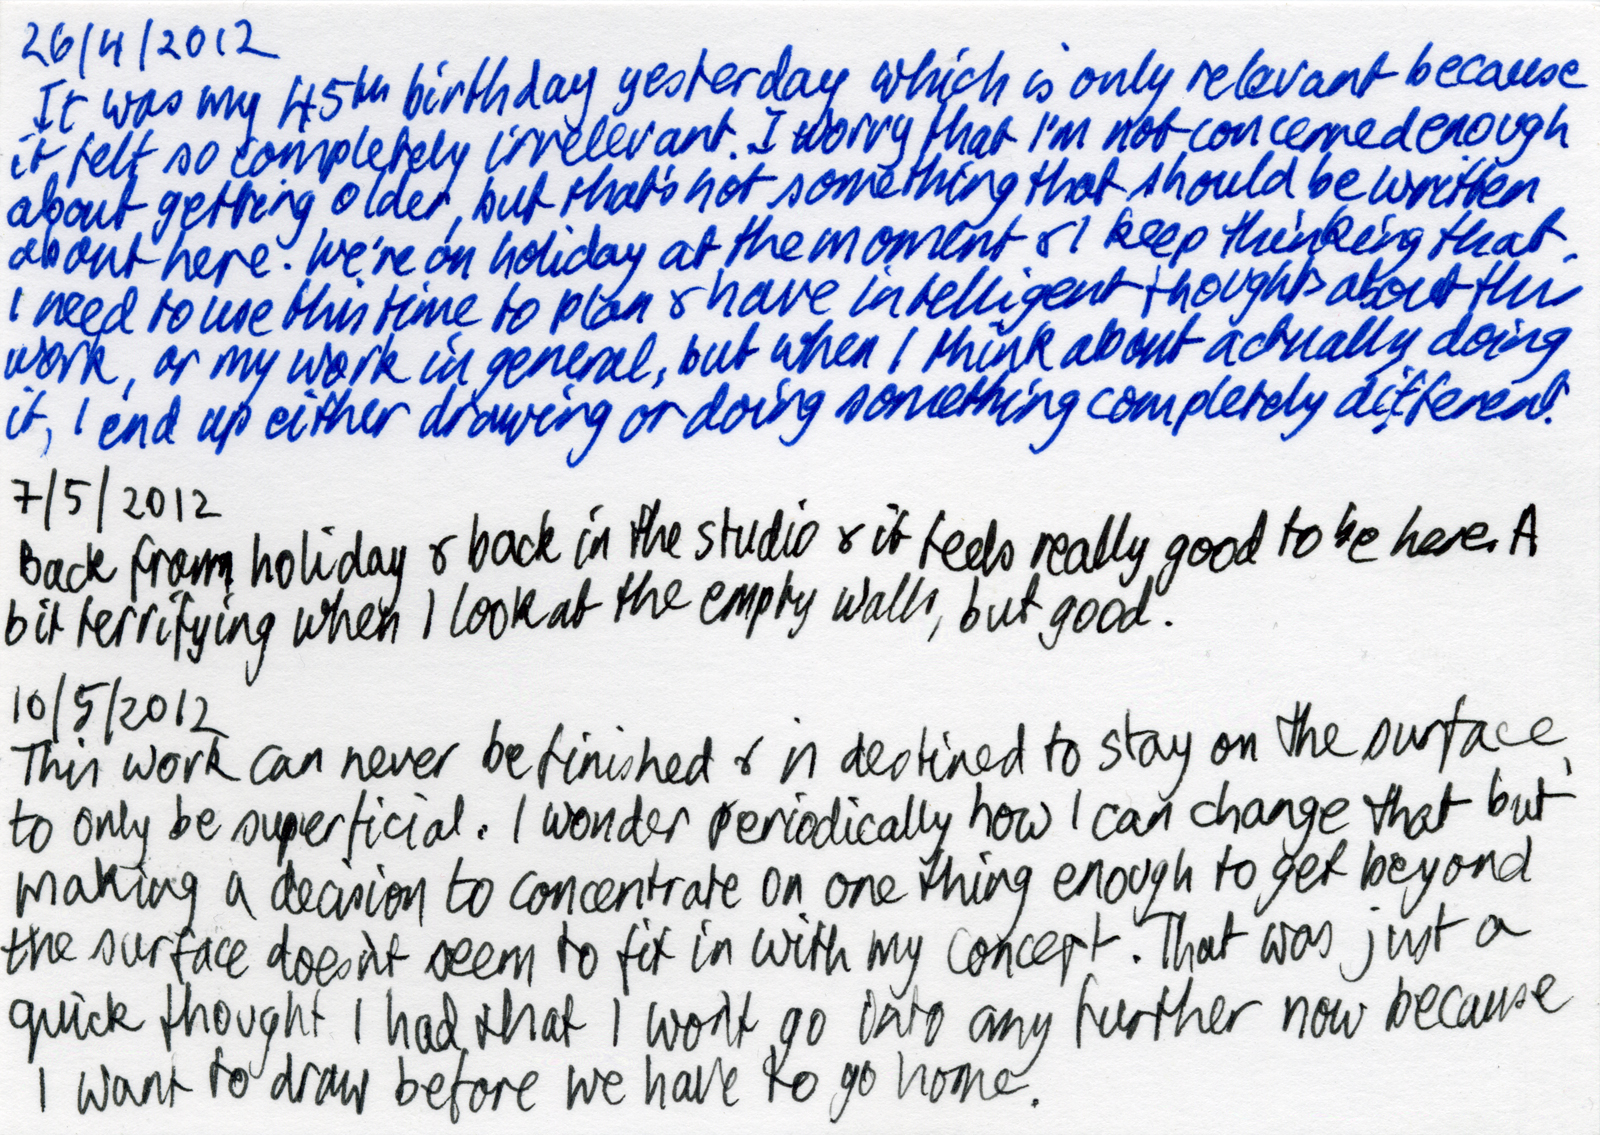 26/4/2012
It was my 45th birthday yesterday which is only relevant because
it felt so completely irrelevant. I worry that I'm not concerned enough
about getting older, but that's not something that should be written
about here. We're on holiday at the moment & I keep thinking that
I need to use this time to plan & have intelligent thoughts about this
work, or my work in general, but when I think about actually doing
it, I end up either drawing or doing something completely different.
7/5/2012
Back from holiday & back in the studio & it feels really good to be here. A
bit terrifying when I look at the empty walls, but good.
10/5/2012
This work can never be finished & is destined to stay on the surface,
to only be superficial. I wonder periodically how I can change that but
making a decision to concentrate on one thing enough to get beyond
the surface doesn't seem to fit in with my concept. That was just a
quick thought I had that I won't go into any further now because
I want to draw before we have to go home.